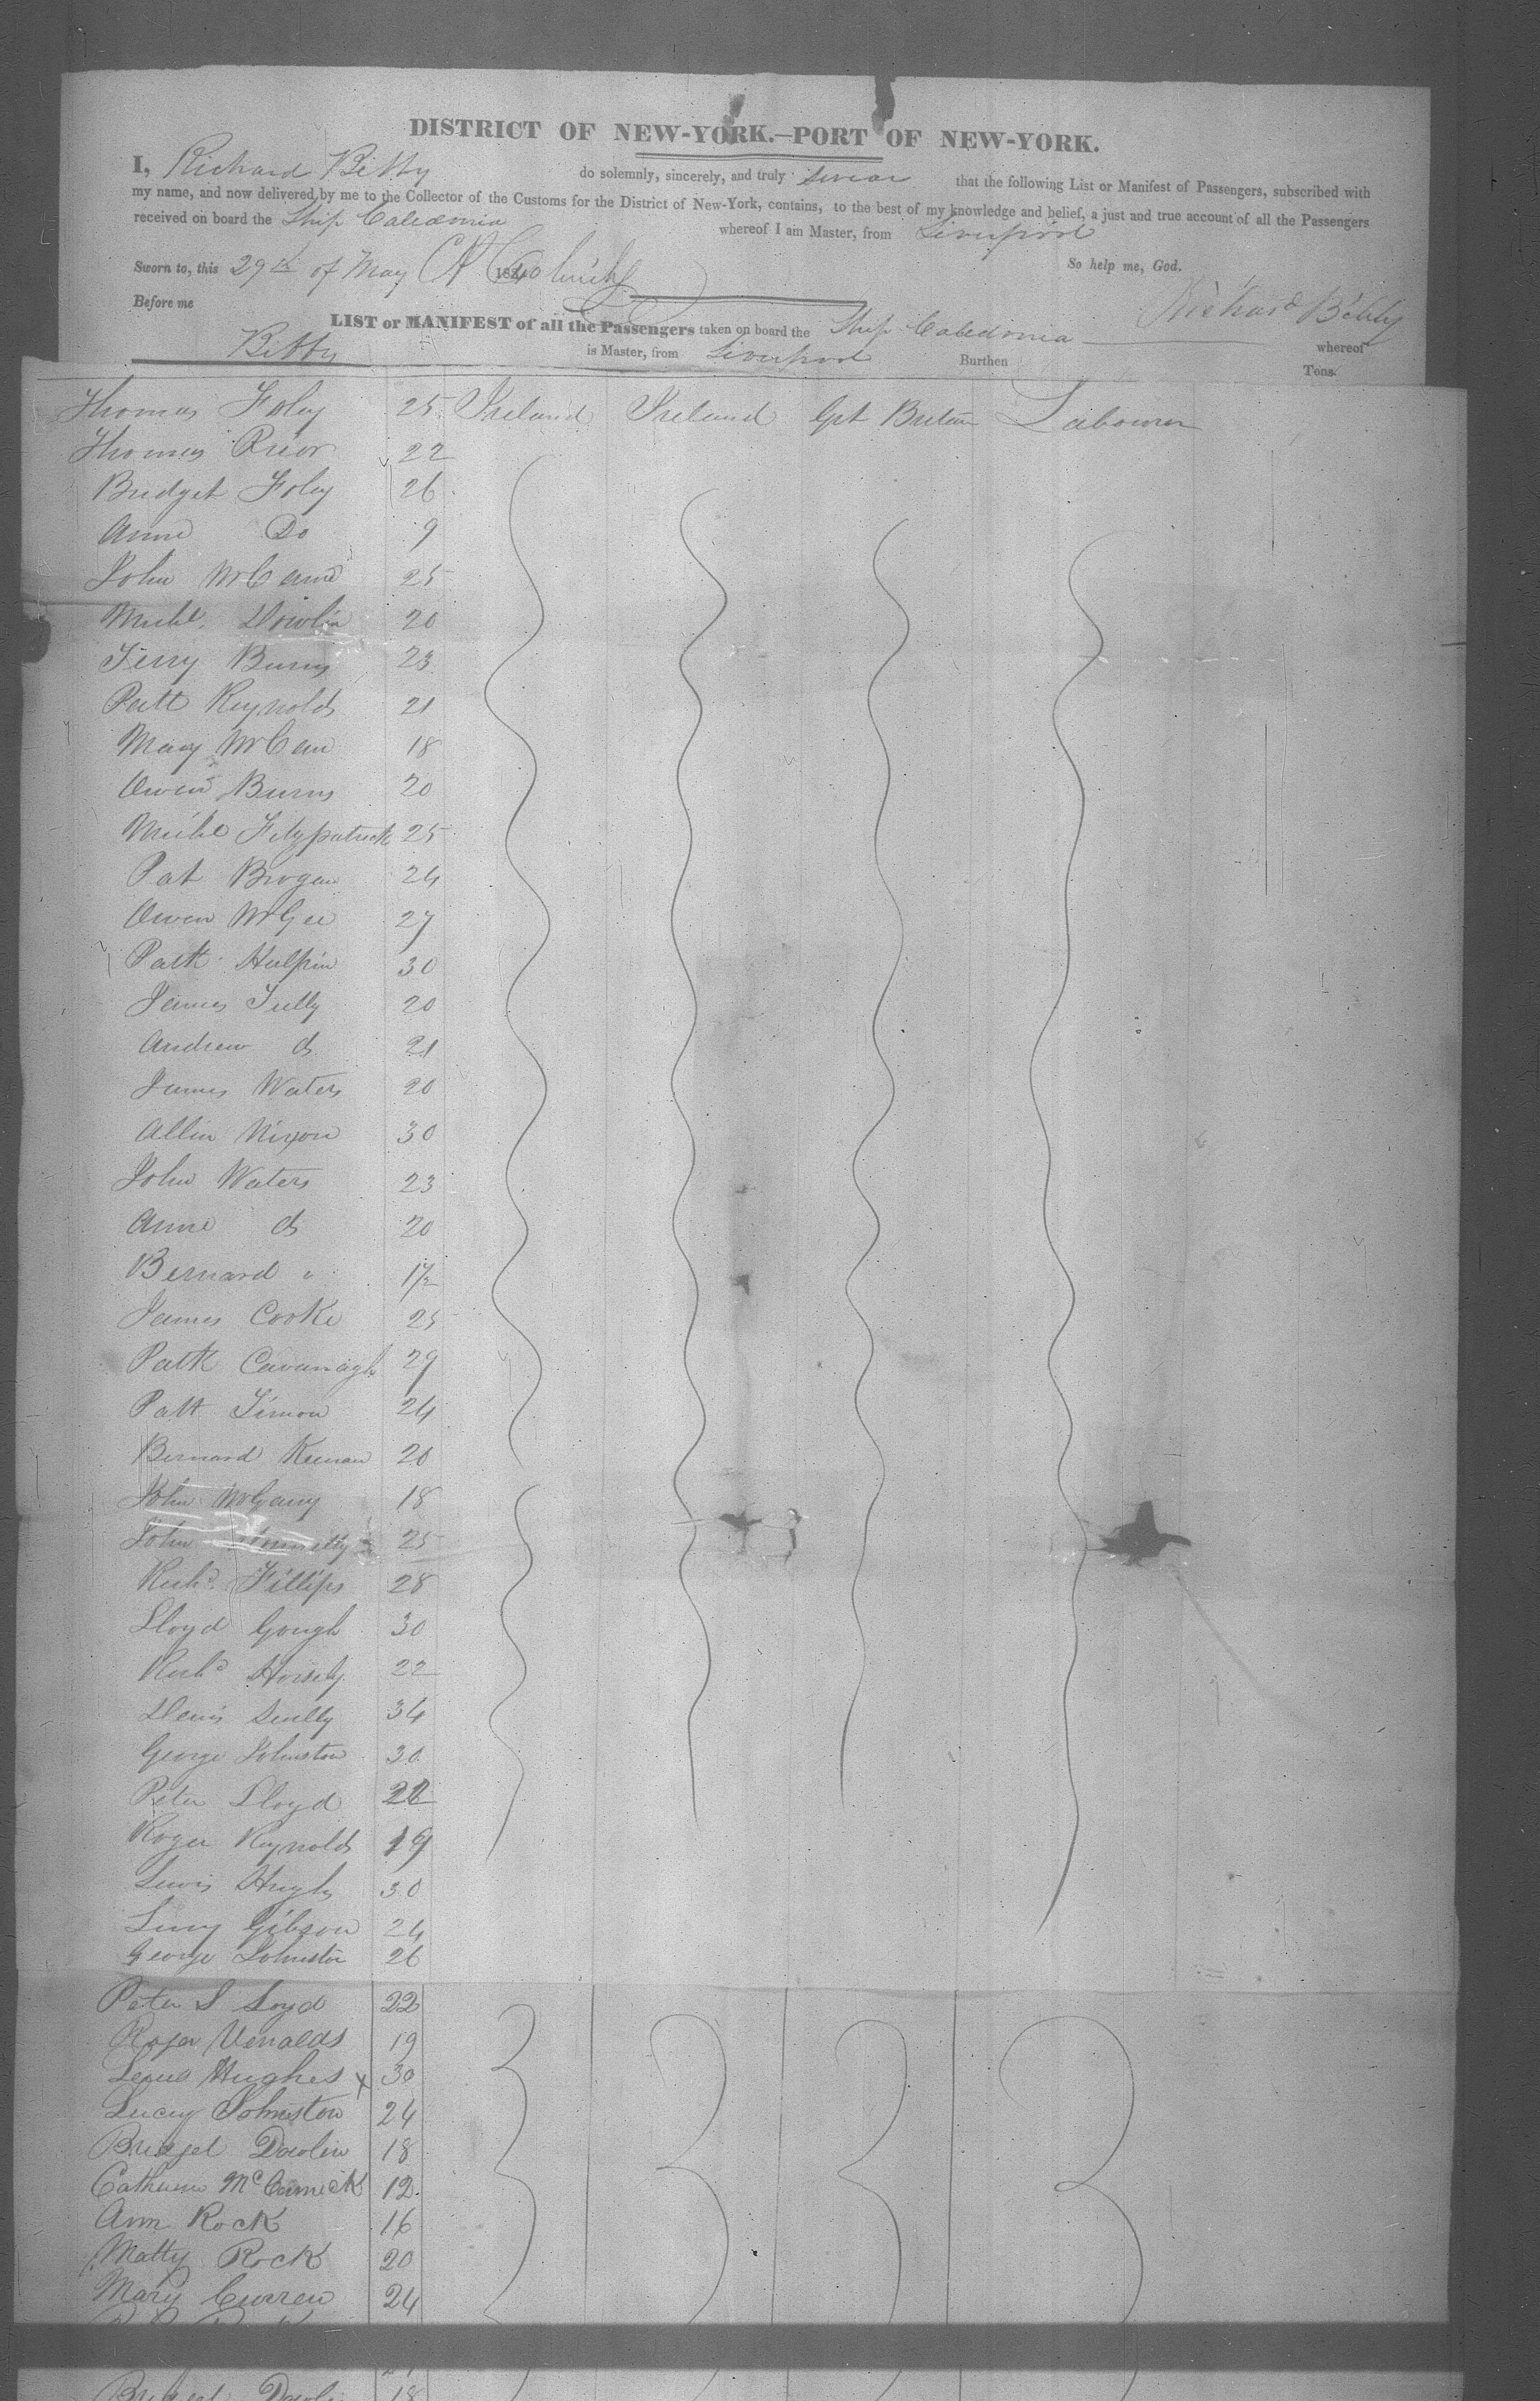 DISTRICT OF NEW-YORK.—PORT OF NEW-YORK.
I, Richard Bibby do solemnly, sincerely, and truly swear that the following List or Manifest of Passengers, subscribed with
my name, and now delivered by me to the Collector of the Customs for the District of New-York, contains, to the best of my knowledge and belief, a just and true account of all the Passengers
received on board the Ship Caledonia whereof I am Master, from Liverpool
Sworn to, this 29th of May 182 So help me, God.
Before me Richard Bibby
LIST or MANIFEST of all the Passengers taken on board the Ship Caledonia whereof
Bibby is Master, from Liverpool Burthen Tons.
Thomas Foley 25 Ireland Ireland Grt Britain Labourer
Thomas Prior 22
Bridget Foley 26
Anne Do 9
John McCann 25
Michl. Dowlin 20
Terry Burns 23
Patt Reynolds 21
Mary McCann 18
Owen Burns 20
Michl Fitzpatrick 25
Pat Brogan 24
Owen McGee 27
Patk Halpin 30
James Tully 20
Andrew do 21
James Waters 20
Allin Nixon 30
John Waters 23
Anne do 20
Bernard " 1½
James Cooke 25
Patk Cavanagh 29
Patt Timon 24
Bernard Keenan 20
John McGarry 18
John 25
Richd. Fillips 28
Lloyd Gough 30
Richd 22
Denis Scully 34
George Johnston 30
Peter Lloyd 22
Roger Reynolds 19
Lewis Hughs 30
Lucy Gibson 24
George Johnston 26
Peter S Loyd 22
Roger 19
Lewis Hughes x 30
Lucey Johnston 24
Bridget Dowlin 18
Catherine McCormick 12
Ann Rock 16
Matty Rock 20
Mary Curren 24
Bridget Dowlin 18